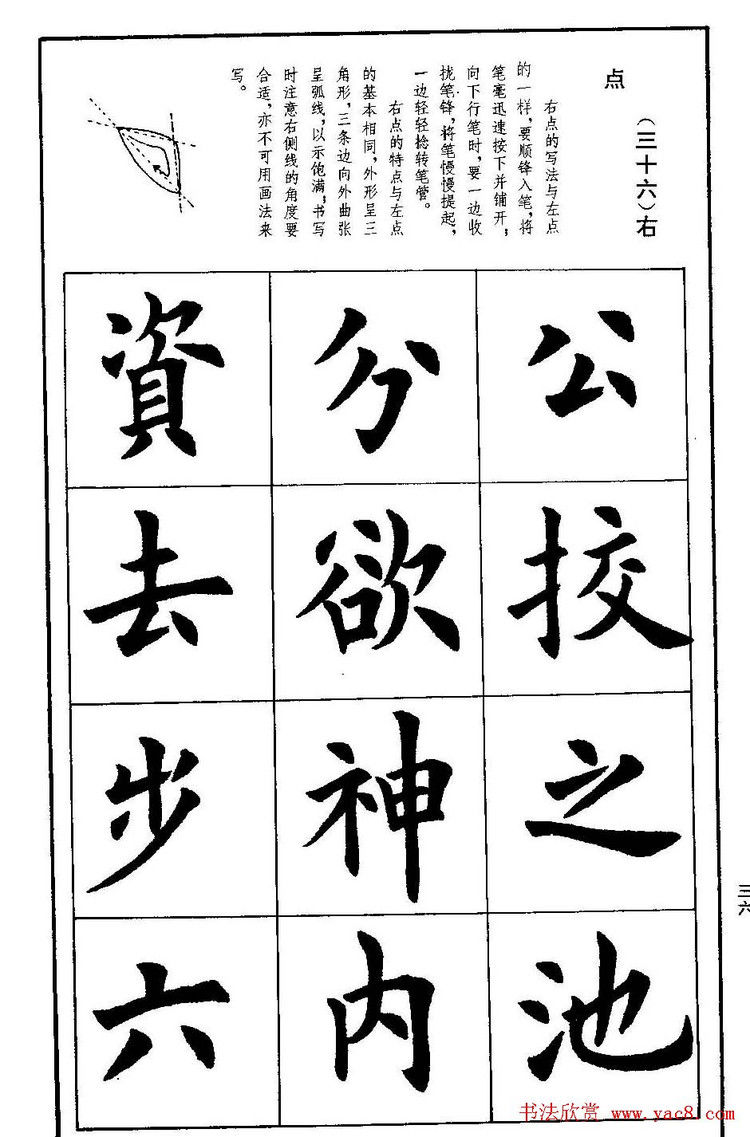 （三十六）右
点
右点的写法与左点
的一样，要顺锋入笔，将
笔毫迅速按下并铺开；
向下行笔时，要一边收
拢笔锋，将笔慢慢提起，
一边轻轻捻转笔管。
右点的特点与左点
的基本相同，外形呈三
角形，三条边向外曲张
呈弧线，以示饱满；书写
时注意右侧线的角度要
合适，亦不可用画法来
写。
公
挍
之
池
分
欲
神
内
資
去
步
六
三六
书法欣赏 www.yac8.com